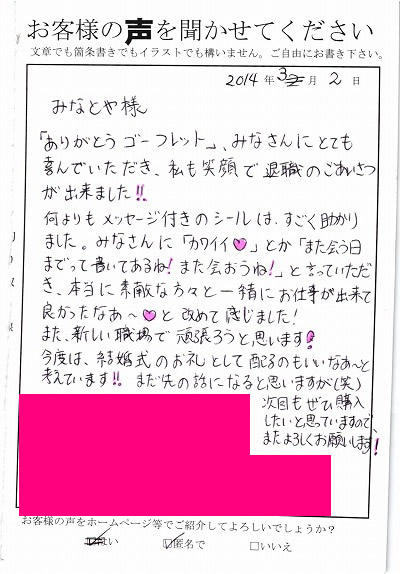 お客様の声を聞かせてください
文章でも箇条書きでもイラストでも構いません。ご自由にお書き下さい。
2014年3月2日
みなとや様
「ありがとうゴーフレット」、みなさんにとても
喜んでいただき、私も笑顔で退職のごあいさつ
が出来ました!!
何よりもメッセージ付きのシールは、すごく助かり
ました。みなさんに「カワイイ♥」とか「また会う日
までって書いてあるね!また会おうね!」と言っていただ
き、本当に素敵な方々と一緒にお仕事が出来て
良かったなあ〜♥と改めて感じました!
また、新しい職場で頑張ろうと思います!
今度は、結婚式のお礼として配るのもいいなあ〜と
考えています!!まだ先の話になると思いますが(笑)
次回もぜひ購入
したいと思っていますので、
またよろしくお願いします!
お客様の声をホームページ等でご紹介してよろしいでしょうか?
☑はい ☑匿名で □いいえ